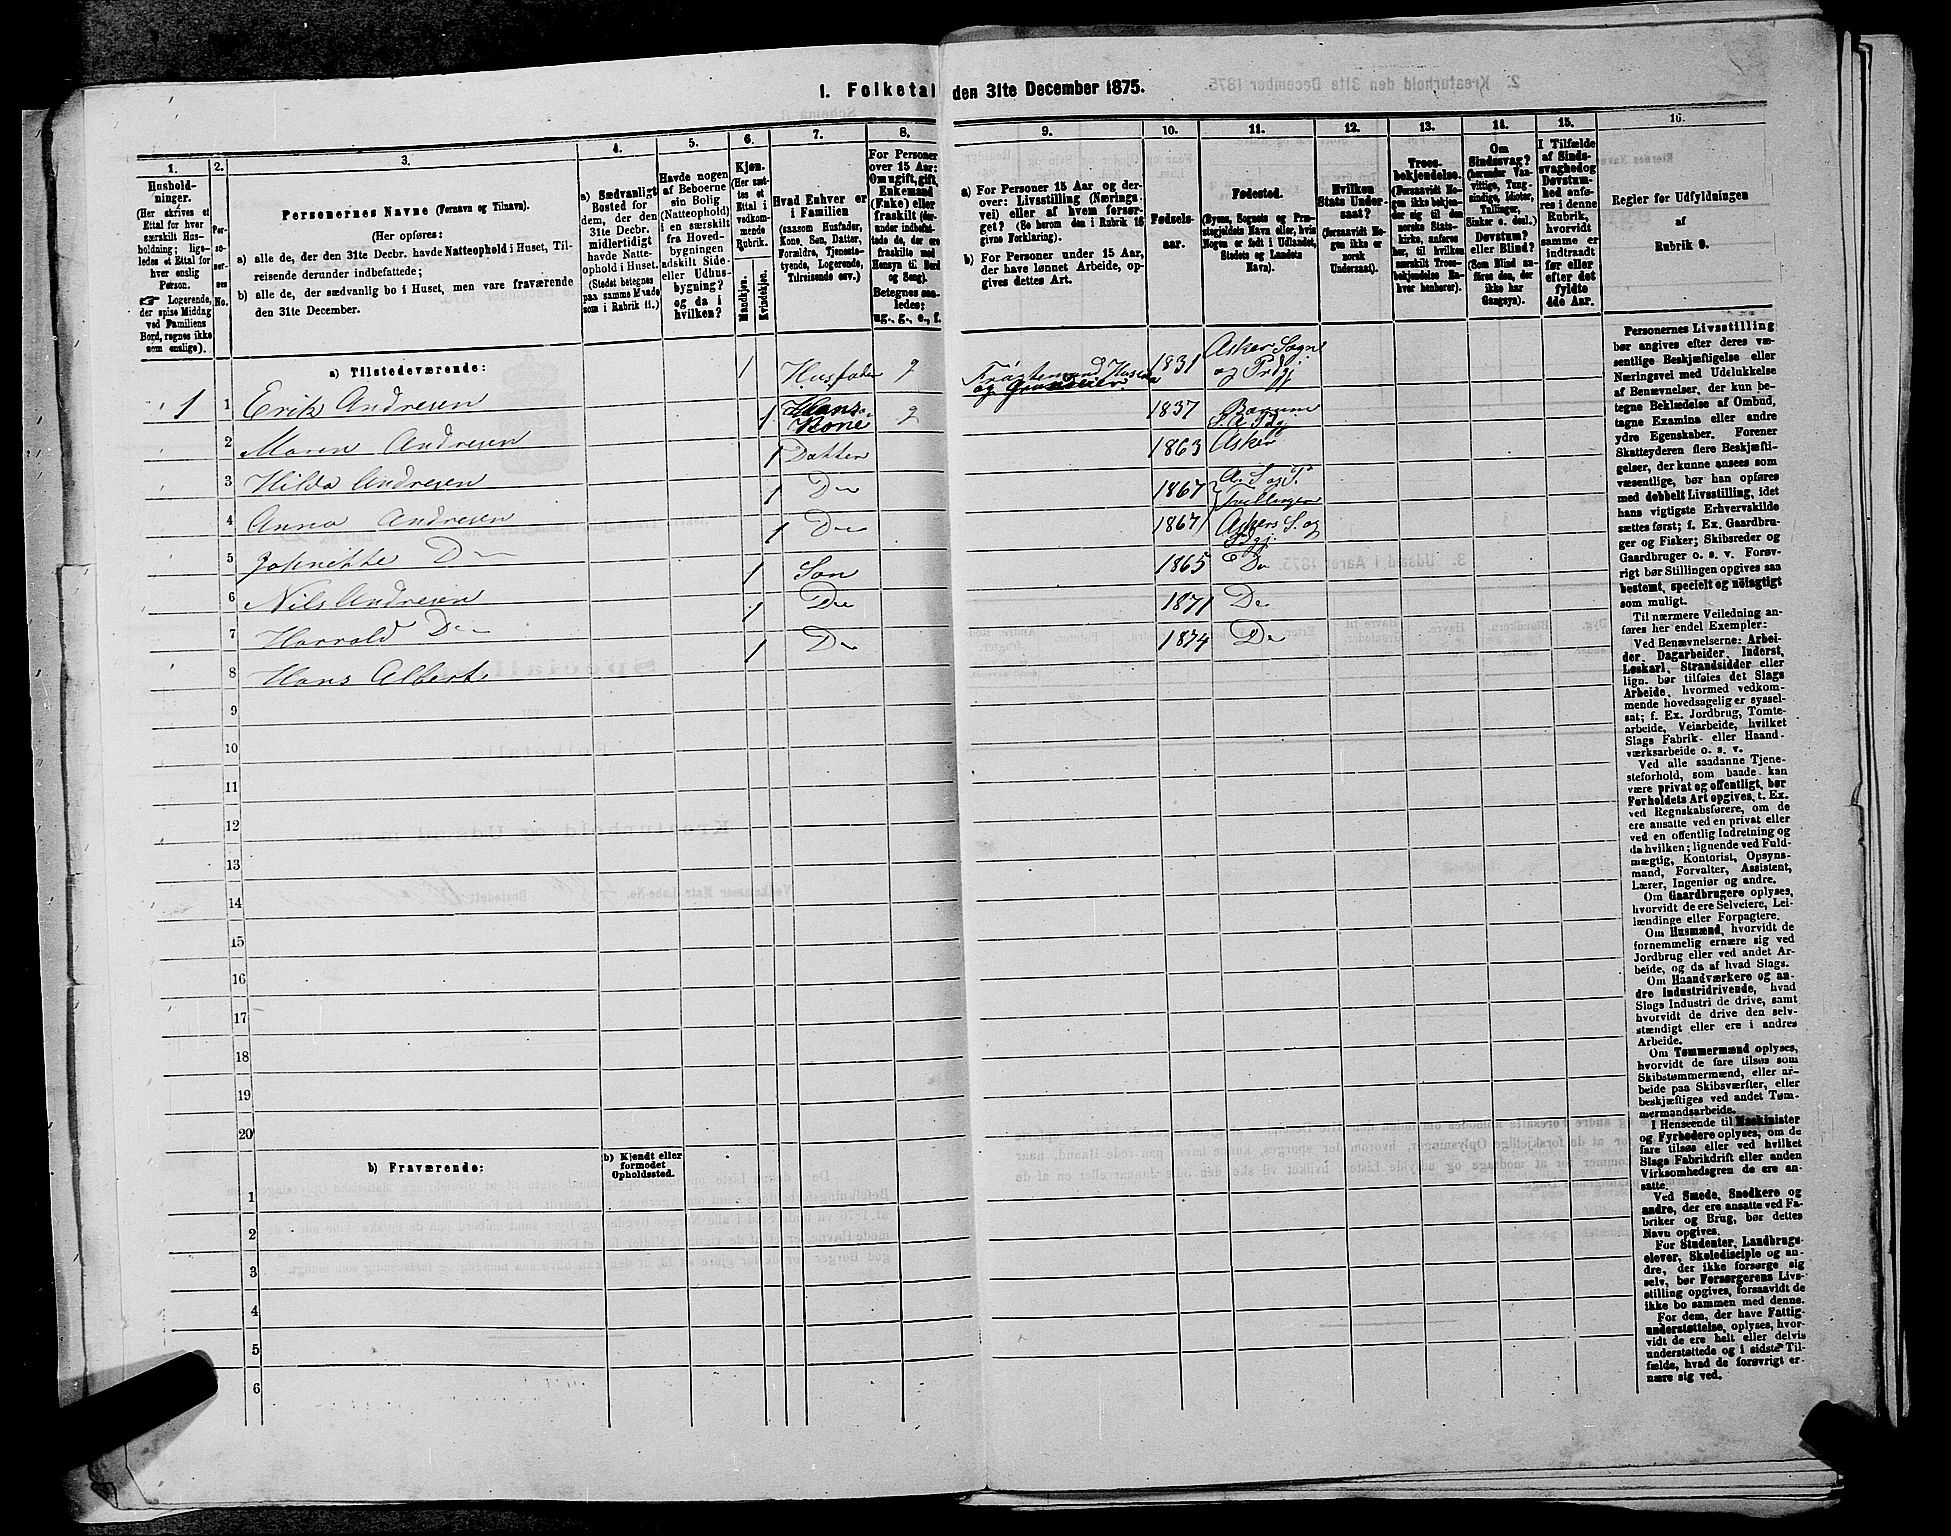 1. Folketal den 31te December 1875.
1.
Hushold-
ninger.
(Her skrives et
Ettal for hver
særskilt Hus-
holdning; lige-
ledes et Ettal for
hver enslig
Person.
☞ Logerende,
der spise Middag
ved Familiens
Bord, regnes ikke
som enslige).
2.
Per-
so-
ner-
nes
No.
3.
Personernes Navne (Fornavn og Tilnavn).
(Her opføres:
a) alle de, der den 31te Decbr. havde Natteophold i Huset, Til-
reisende derunder indbefattede;
b) alle de, der sædvanlig bo i Huset, men vare fraværende
den 31te December.
4.
a) Sædvanligt
Bosted for
dem, der den
31te Decbr.
midlertidigt
havde Natte-
ophold i Huset.
(Stedet betegnes
paa samme Maade
som i Rubrik 11.)
5.
Havde nogen
af Beboerne
sin Bolig
(Natteophold)
i en særskilt
fra Hoved-
bygningen
adskilt Side-
eller Udhus-
bygning?
og da i
hvilken?
6.
Kjøn.
(Her sæt-
tes et
Ettal i
vedkom-
mende
Rubrik.
Mandkjøn.
Kvindekjøn.
7.
Hvad Enhver er
i Familien
(saasom Husfader,
Kone, Søn, Datter,
Forældre, Tjeneste-
tyende, Logerende,
Tilreisende osv.)
8.
For Personer
over 15 Aar:
Om ugift, gift,
Enkemand
(Enke) eller
fraskilt (der-
under indbefat-
tede de, der ere
fraskilte med
Hensyn til Bord
og Seng).
Betegnes saa-
ledes:
ug., g., e., f.
9.
a) For Personer 15 Aar og der-
over: Livsstilling (Nærings-
vei) eller af hvem forsør-
get? (Se herom den i Rubrik 16
givne Forklaring).
b) For Personer under 15 Aar,
der have lønnet Arbeide, op-
gives dettes Art.
10.
Fødsels-
aar.
11.
Fødested.
(Byens, Sognets og Præ-
stegjeldets Navn eller, hvis
Nogen er født i Udlandet,
Stedets og Landets
Navn).
12.
Hvilken
Stats Under-
saat?
(forsaavidt No-
gen ikke er
norsk
Undersaat).
13.
Troes-
bekjendelse.
(Forsaavidt No-
gen ikke bekjen-
der sig til den
norske Stats-
kirke, anføres
her, til hvilken
særskilt Troes-
bekjendelse En-
hver henhører).
14.
Om
Sindssvag?
(herunder Van-
vittige, Tung-
sindige, Idioter,
Tullinger,
Sinker o. desl.)
Døvstum?
eller Blind?
(Som Blind an-
føres den, der
ikke har
Gangsyn).
15.
I Tilfælde
af Sinds-
svaghed og
Døvstum-
hed anfø-
res i denne
Rubrik,
hvorvidt
samme er
indtraadt
før eller
efter det
fyldte
4de Aar.
16.
Regler for Udfyldningen
af
Rubrik 9.
a) Tilstedeværende:
1 1 Erik Andresen 1 Husfader g Husm og Grundeier. 1831 Asker Sogn og Prdgj
2 Maren Andresen 1 Hans Kone g 1837 Bærum S. & Pdgj
3 Hilda Andresen 1 Datter 1863 Asker
4 Anna Andresen 1 Do 1867 A. S. og P. Tvillinger
5 Josnette Do 1 Do 1867 Askers S. og Pdgj.
6 Nils Andresen 1 Søn 1865 Do
7 Harrald Do 1 Do 1871 Do
8 Hans Albert 1 Do 1874 Do
9
10
11
12
13
14
15
16
17
18
19
20
b) Fraværende:
b) Kjendt eller
formodet
Opholdssted.
1
2
3
4
5
6
Personernes Livsstilling
bør angives efter deres væ-
sentlige Beskjæftigelse eller
Næringsvei med Udelukkelse
af Benævnelser, der kun be-
tegne Beklædelse af Ombud,
tagne Examina eller andre
ydre Egenskaber. Forener
Skatteyderen flere Beskjæfti-
gelser, der kunne ansees som
væsentlige, bør han opføres
med dobbelt Livsstilling, idet
hans vigtigste Erhvervskilde
sættes først; f. Ex. Gaardbru-
ger og Fisker; Skibsreder og
Gaardbruger o. s. v. Forøv-
rigt bør Stillingen opgives saa
bestemt, specielt og nöiagtigt
som muligt.
Til nærmere Veiledning an-
føres her endel Exempler:
Ved Benævnelserne: Arbei-
der, Dagarbeider, Inderst,
Løskarl, Strandsidder eller
lign. bør tilføies det Slags
Arbeide, hvormed vedkom-
mende hovedsagelig er syssel-
sat; f. Ex. Jordbrug, Tomte-
arbeide, Veiarbeide, hvilket
Slags Fabrik- eller Haand-
værksarbeide o. s. v.
Ved alle saadanne Tjene-
steforhold, som baade kan
være privat og offentligt, bør
Forholdets Art opgives, t. Ex.
ved Regnskabsførere, om de
ere ansatte ved en privat eller
ved en offentlig Indretning og
da hvilken; lignende ved Fuld-
mægtig, Kontorist, Opsyns-
mand, Forvalter, Assistent,
Lærer, Ingeniør og andre.
Om Gaardbrugere oplyses,
hvorvidt de ere Selveiere, Lei-
lændinge eller Forpagtere.
Om Husmænd, hvorvidt de
fornemmelig ernære sig ved
Jordbrug eller ved andet Ar-
beide, og da af hvad Slags.
Om Haandværkere og an-
dre Industridrivende, hvad
Slags Industri de drive, samt
hvorvidt de drive den selv-
stændigt eller ere i andres
Arbeide.
Om Tømmermænd oplyses,
hvorvidt de fare tilsøs som
Skibstømmermænd, eller ar-
beide paa Skibsværfter, eller
beskjæftiges ved andet Tøm-
mermandsarbeide.
I Henseende til Maskinister
og Fyrbødere oplyses, om de
fare tilsøs eller ved hvilket
Slags Fabrikdrift eller anden
Virksomhedsgren de ere an-
satte.
Ved Smede, Snedkere og
andre, der ere ansatte ved Fa-
briker og Brug, bør dettes
Navn opgives.
For Studenter, Landbrugs-
elever, Skoledisciple og an-
dre, der ikke forsørge sig
selv, bør Forsørgerens Livs-
stilling opgives, forsaavidt de
ikke bo sammen med denne.
For dem, der have Fattig-
understøttelse, oplyses, hvor-
vidt de ere helt eller delvis
understøttede og i sidste Til-
fælde, hvad de forøvrigt er-
nære sig ved.